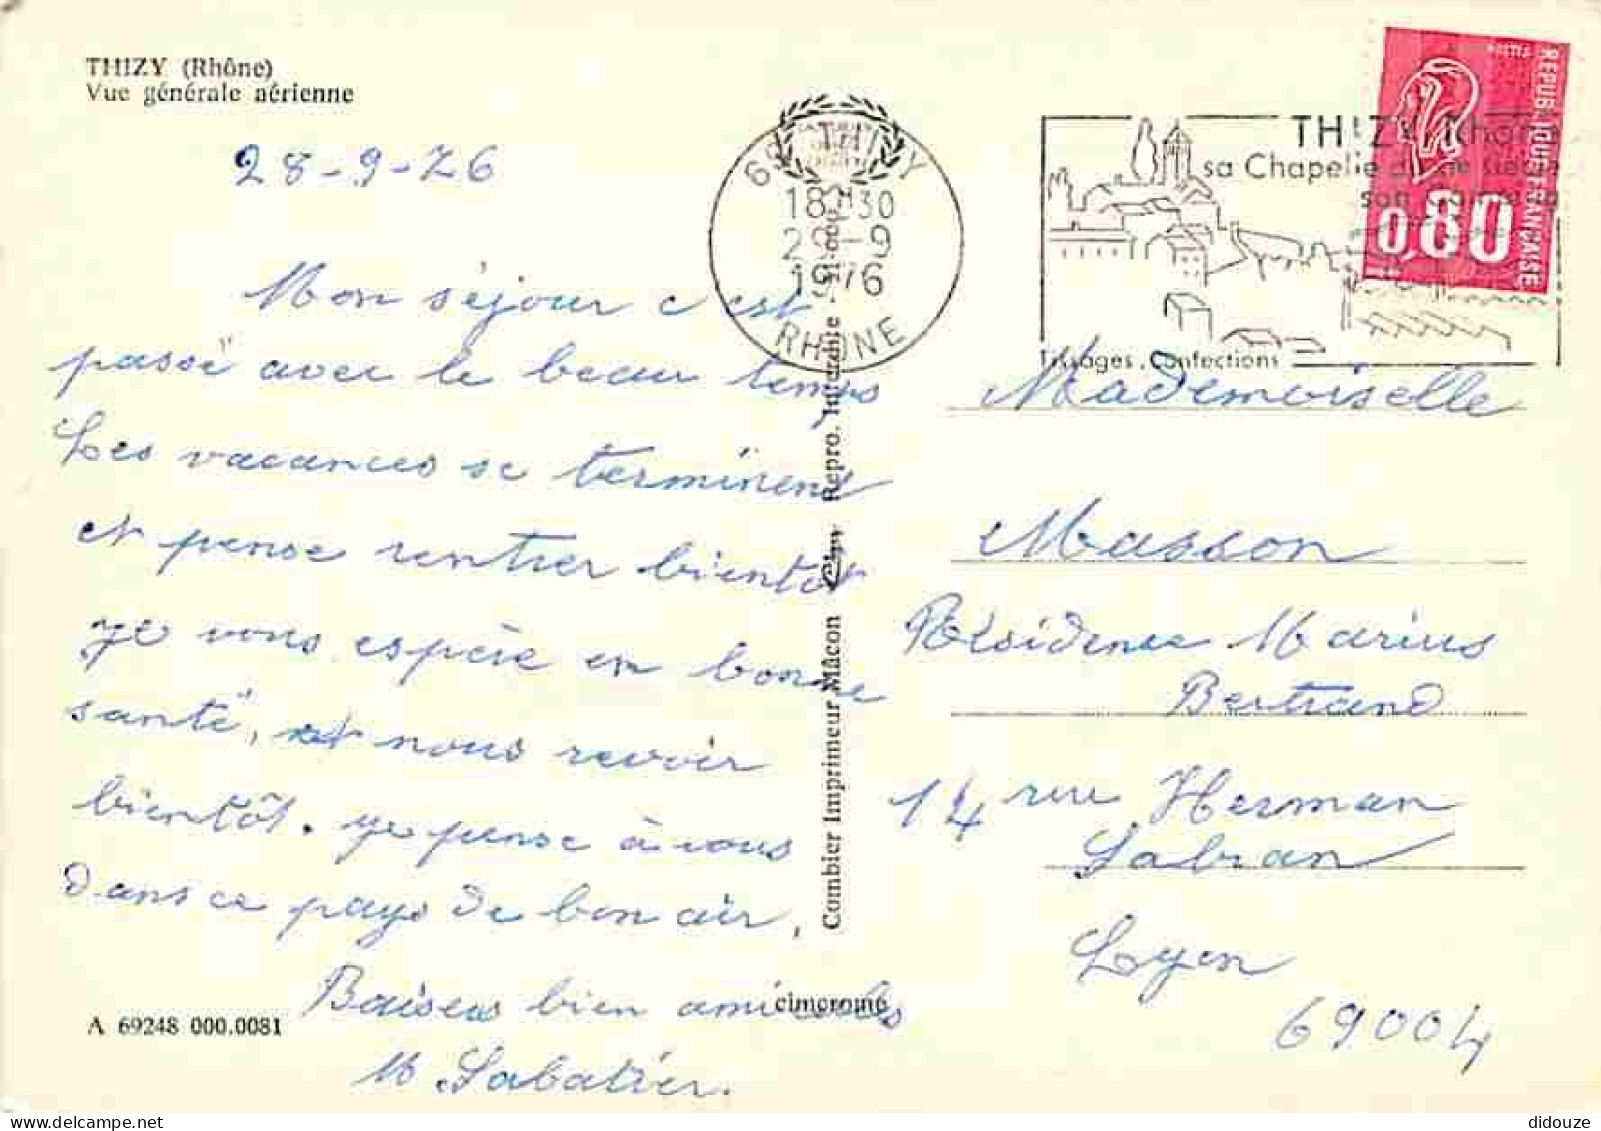 THIZY (Rhône)
Vue générale aérienne
28-9-76
Mon séjour c'est
passé avec le beau temps
Les vacances se terminent
et pense rentrer bientôt
je vous espère en bonne
santé, et nous revoir
bientôt. je pense à vous
dans ce pays de bon air,
Baisers bien amicales
M Sabatier.
A 69248 000.0081
Combier Imprimeur Mâcon
Repro. Interdite
cimcrome
THIZY
18H30
29-9
1976
RHÔNE
THIZY Rhône
sa Chapelle du
son
Tissages. Confections
REPUBLIQUE FRANÇAISE
0,80
Mademoiselle
Masson
Résidence Marius
Bertrand
14 rue Herman
Sabran
Lyon
69004
didouze